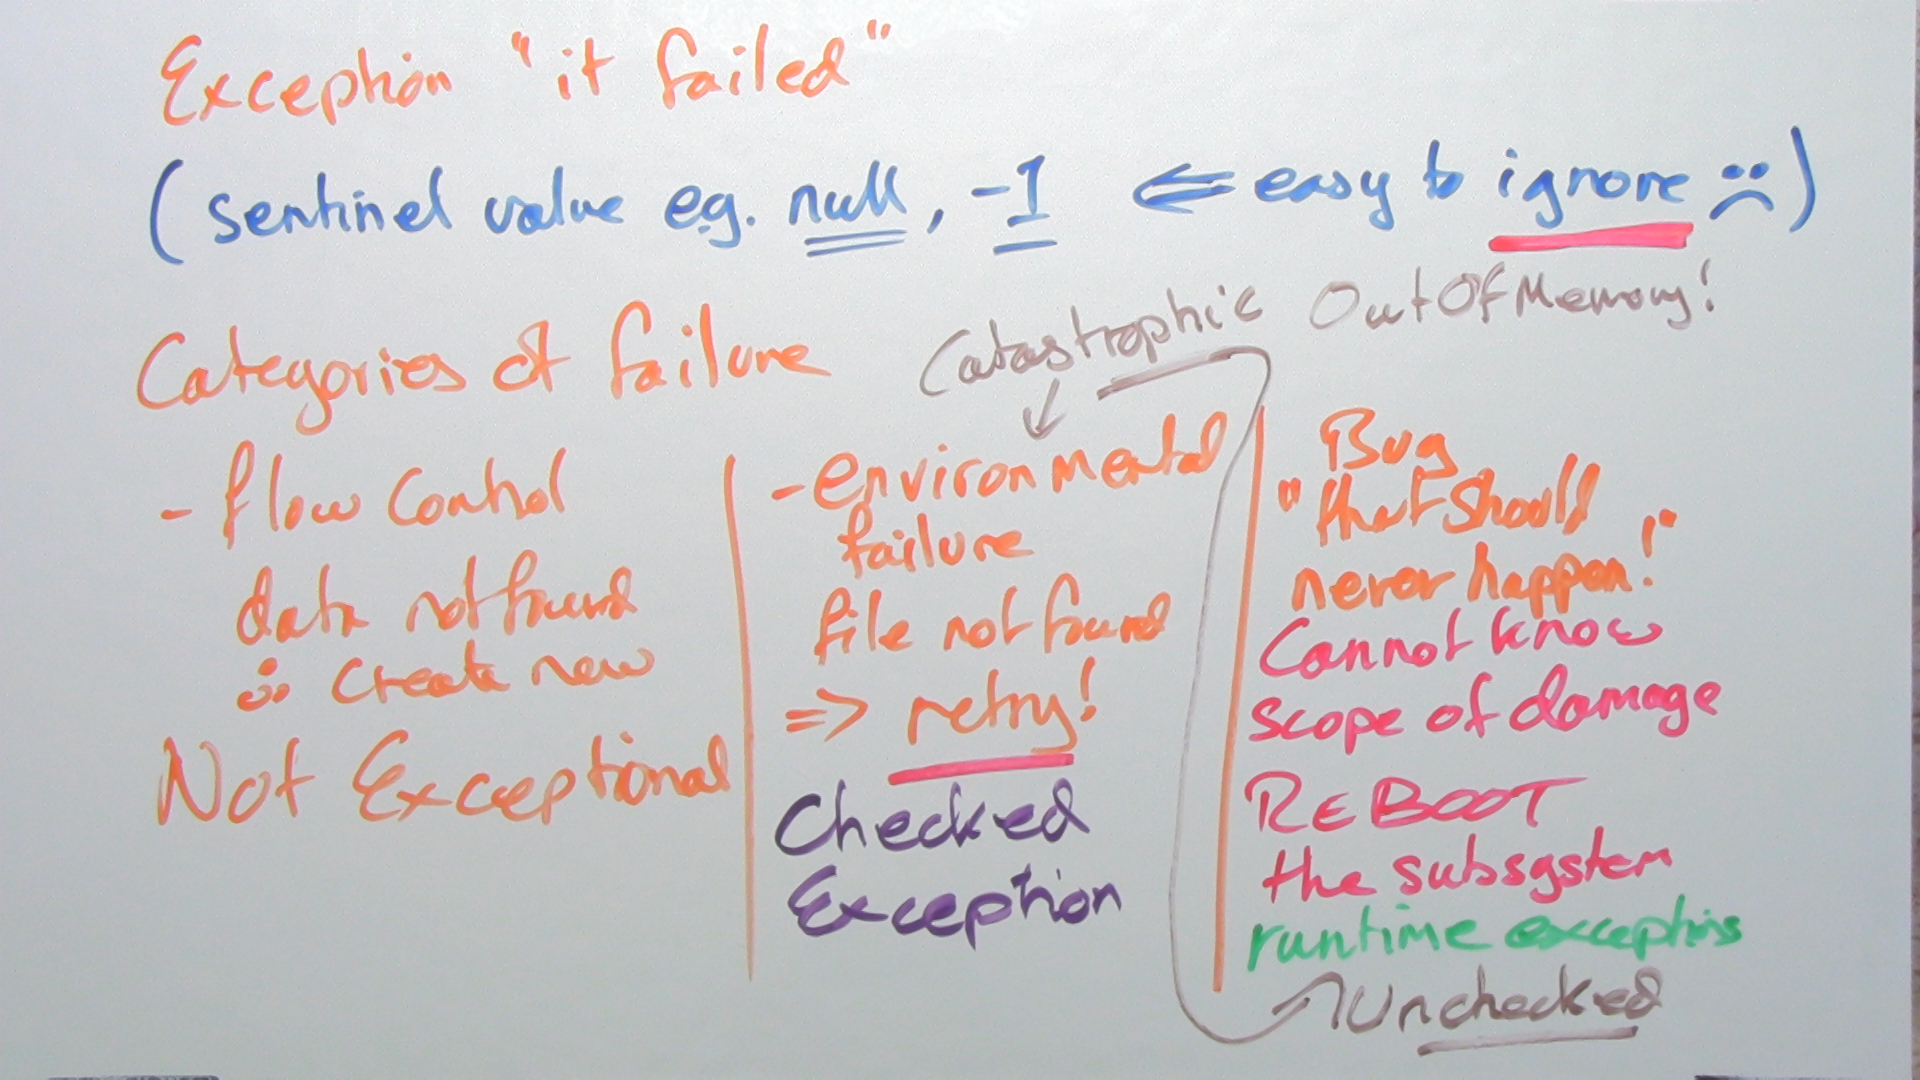 Exception "it failed"
(sentinel value e.g. null, -1 ⇐ easy to ignore ☹)
Categories of failure
Catastrophic OutOfMemory!
- flow control
data not found
∴ create new
Not Exceptional
- environmental
failure
file not found
=> retry!
Checked
Exception
Bug
"that should
never happen!"
Cannot know
scope of damage
REBOOT
the subsystem
runtime exceptions
Unchecked